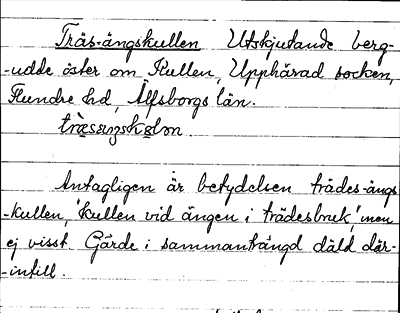 Träs-ängskullen Utskjutande berg-
-udde öster om Kullen, Upphärad socken,
Flundre hd, Älfsborgs län.
Antagligen är betydelsen trädes-ängs
-kullen, 'kullen vid ängen i trädesbruk,' men
ej visst. Gärde i sammanträngd däld där-
-intill.